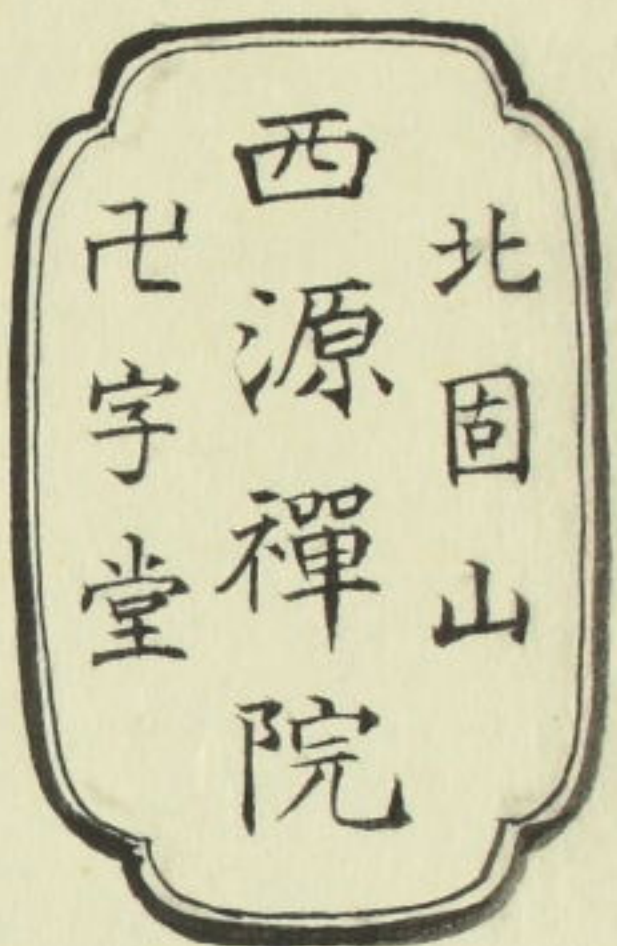 北固山
西源禪院
卍字堂